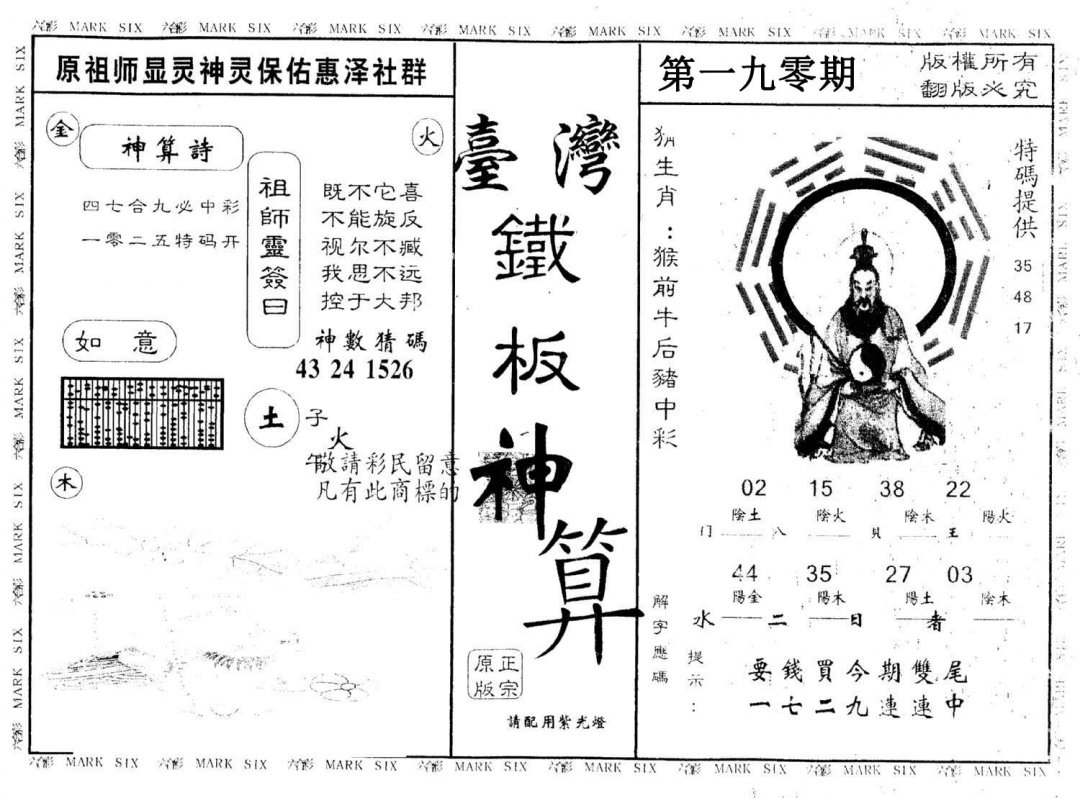 六合彩 MARK SIX 六合彩 MARK SIX 六合彩 MARK SIX 六合彩 MARK SIX 六合彩 MARK SIX 六合彩 MARK SIX 六合彩 MARK SIX 六合彩 MARK SIX
原祖师显灵神灵保佑惠泽社群
金
火
神算詩
四七合九必中彩
一零二五特码开
祖師靈簽曰
既不它喜
不能旋反
视尔不臧
我思不远
控于大邦
神數猜碼
43 24 1526
如意
土
子
火
午敬請彩民留意
凡有此商標的
木
臺灣
鐵
板
神
算
正宗
原版
請配用紫光燈
第一九零期
版權所有
翻版必究
猜生肖：猴前牛后豬中彩
特碼提供
35
48
17
02 15 38 22
陰土 陰火 陰木 陽火
门 八 貝 王
44 35 27 03
陽金 陽木 陽土 陰木
水 二 日 者
解字應碼
提示：
要錢買今期雙尾
一七二九連連中
六合彩 MARK SIX 六合彩 MARK SIX 六合彩 MARK SIX 六合彩 MARK SIX 六合彩 MARK SIX 六合彩 MARK SIX 六合彩 MARK SIX 六合彩 MARK SIX